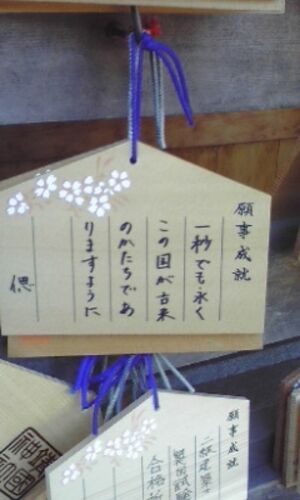 願事成就
一秒でも永く
この国が古来
のかたちであ
りますように
偲
願事成就
二級建築
製図試験
合格